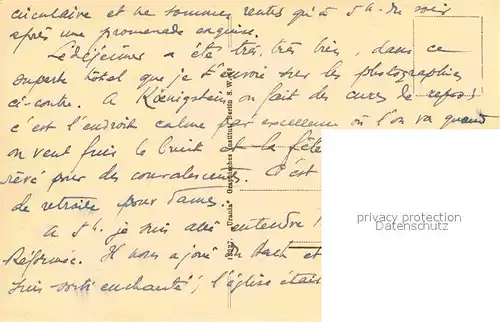 circulaire et ne sommes rentrés qu'à 5 h. du soir
après une promenade exquise.
Le déjeuner a été très, très bien, dans ce
superbe hôtel que je t'envoie sur les photographies
ci-contre. A Kœnigstein on fait des cures de repos!
c'est l'endroit calme par excellence où l'on va quand
on veut fuir le bruit et la
rêvé pour des convalescents. C'est
de retraite pour dames.
A 5 h. je suis allé entendre
Réformée. Il nous a joué du Bach et
suis sorti enchanté; l'église était
"Urania" Graphisches Institut, Berlin S.W.
privacy protection
Datenschutz